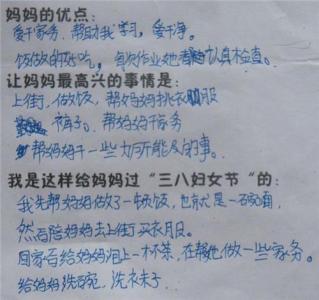 妈妈的优点:
爱干家务、帮助我学习，爱干净。
饭做的好吃，每次作业她都认真检查。
让妈妈最高兴的事情是:
上街、做饭，帮妈妈挑衣服
裤子。帮妈妈干家务
帮妈妈干一些力所能及的事。
我是这样给妈妈过“三八妇女节”的:
我先帮妈妈做了一顿饭，也就是一碗面，
然后陪妈妈去上街买衣服。
回家后给妈妈泡上一杯茶，在帮她做一些家务。
给妈妈洗碗，洗衣未子